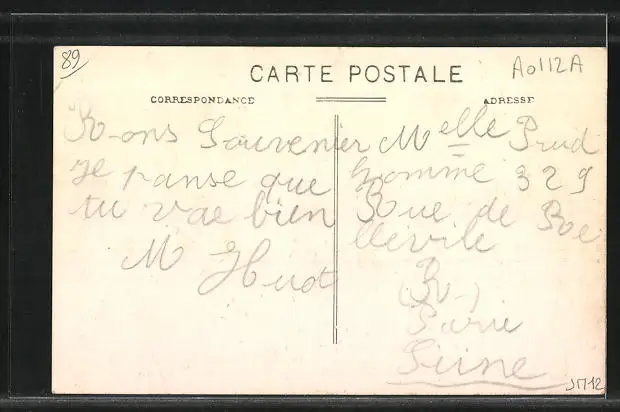 89
CARTE POSTALE
A0112A
CORRESPONDANCE
ADRESSE
Bons Souvenier
Je panse que
tu vae bien
M Huot
Melle Prud
homme 329
Rue de Be
llevile
(B-)
Parie
Seine